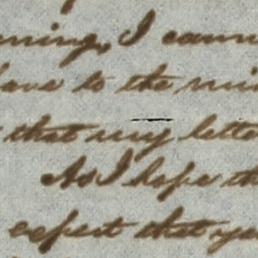 ning, I cann
have to the min
that my lette
As I hope th
expect that yo